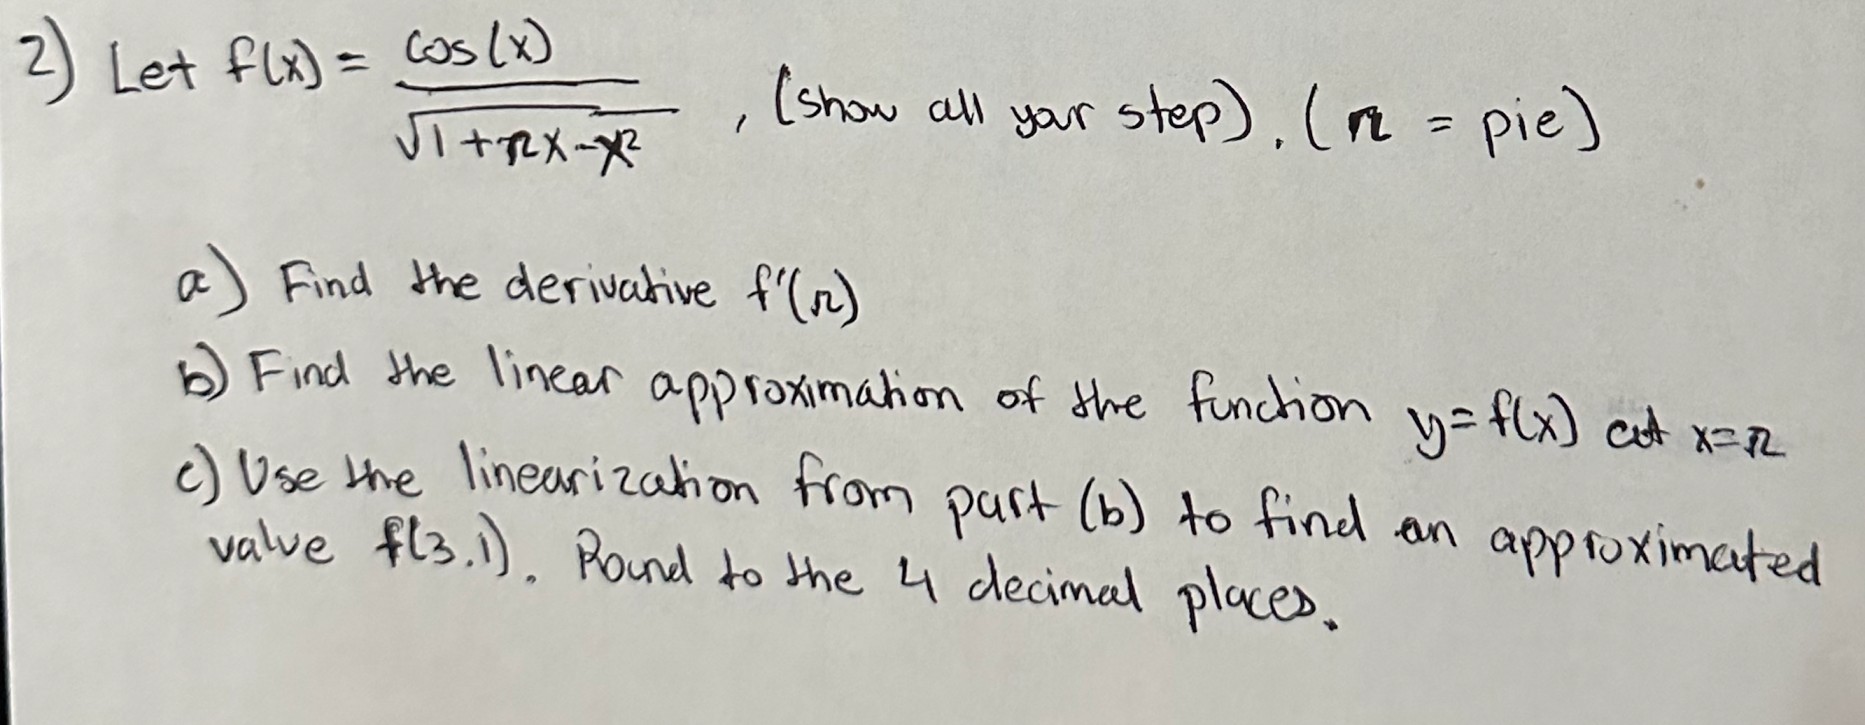 2) Let f(x) = cos(x) / √1+πx-x² , (show all your step). (π = pie)
a) Find the derivative f'(π)
b) Find the linear approximation of the function y=f(x) at x=π
c) Use the linearization from part (b) to find an approximated
value f(3.1). Round to the 4 decimal places.